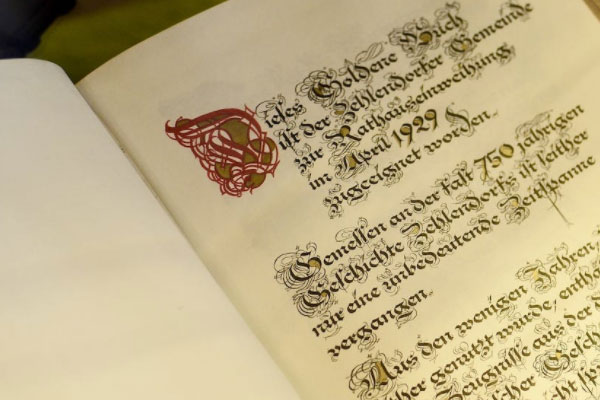 Dieses Goldene Buch
ist der Zehlendorfer Gemeinde
zur Rathauseinweihung
im April 1929
zugeeignet worden.
Gemessen an der fast 750 jährigen
Geschichte Zehlendorfs ist seither
nur eine unbedeutende Zeitspanne
vergangen.
Aus den wenigen Jahren,
genutzt wurde, entha
Zeugnisse aus der
Gesch